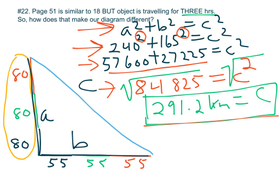 #22. Page 51 is similar to 18 BUT object is travelling for THREE hrs.
So, how does that make our diagram different?
a² + b² = c²
240² + 165² = c²
57600 + 27225 = c²
C → √84825 = √c²
291.2 km = C
80
80
80
a
b
55 55 55